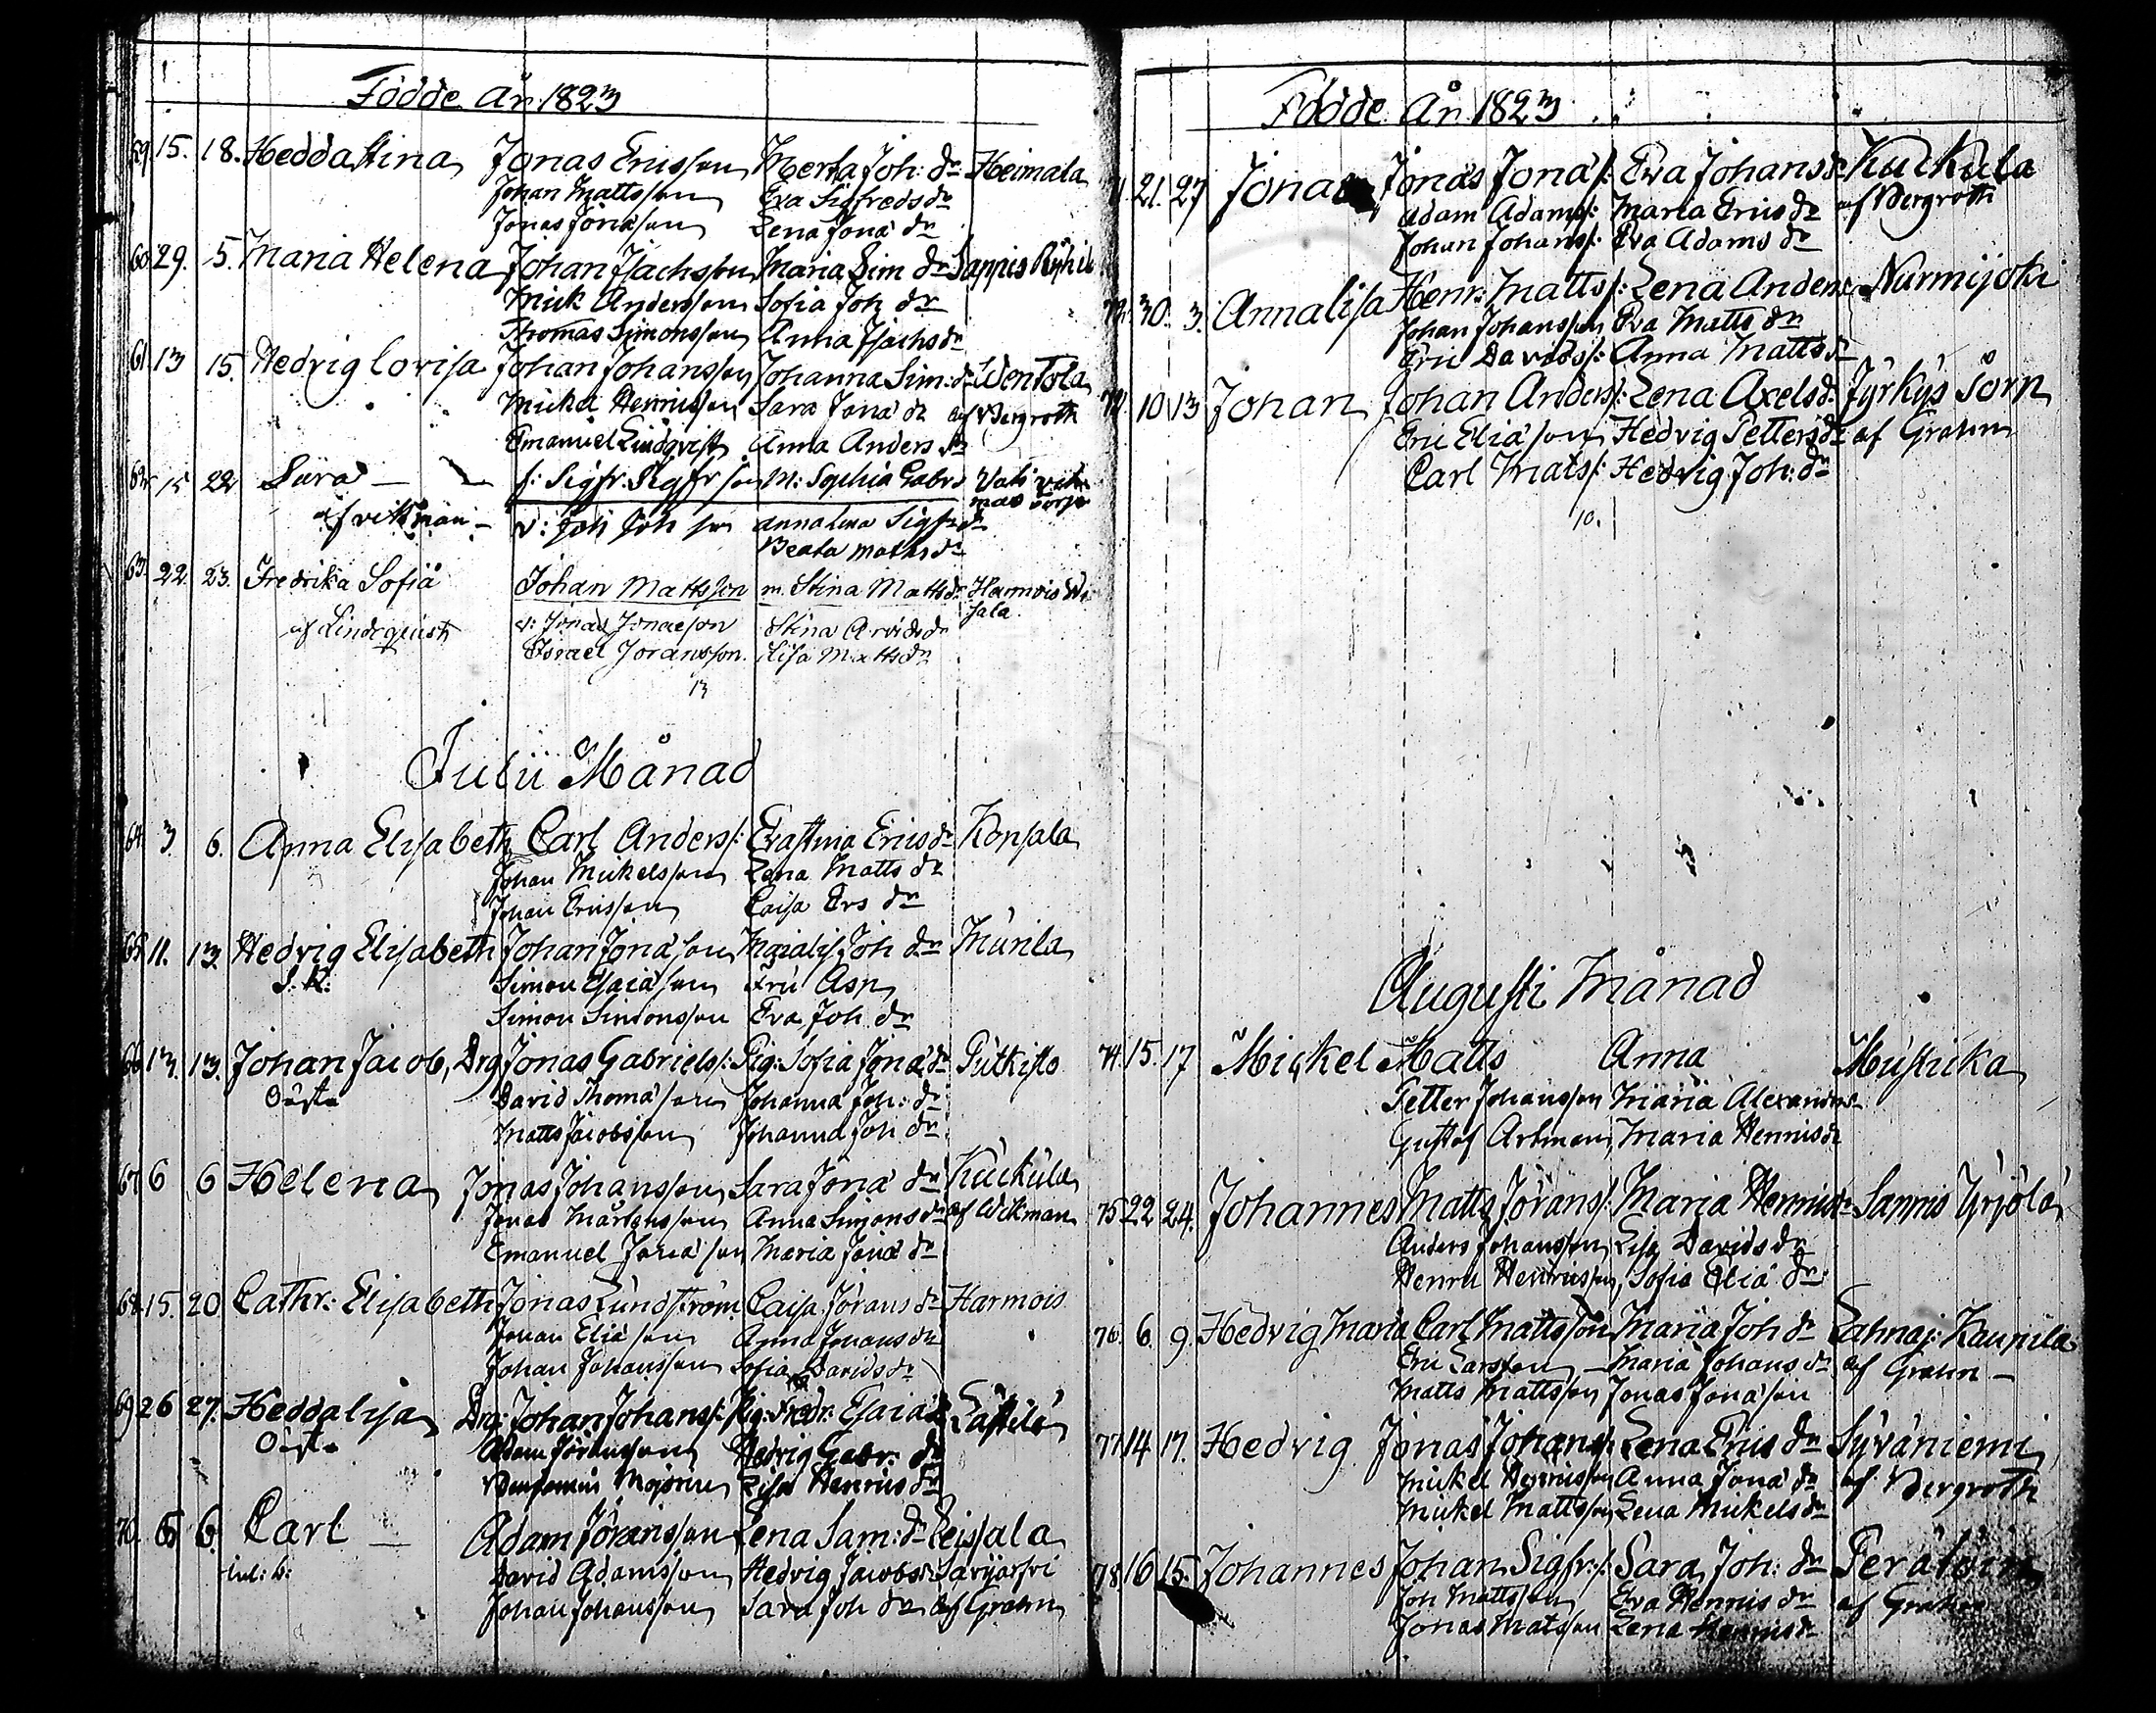 Födde År 1823
59. 15. 18. Hedda Stina Jonas Ericsson Merta Joh: dr Heimala
Johan Mattsson Eva Sigfreds dr
Jonas Jonasson Lena Jona dr
60 29. 5. Maria Helena Johan Isachsson Maria Sim dr Sappis
Mick Andersson Sofia Joh dr
Thomas Simonsson Anna Isachs dr
61 13 15. Hedvig Lovisa Johan Johansson Johanna Sim: dr Wentola
Mickel Henricsson Sara Jona dr af Bergroth
Emanuel Lindqvist Anna Anders dr
62 15 22 Sara — f: Sigfr. Sigfr son M: Sophia Gabrs
v: Joh Joh son Annalena Sigfr dr
Beata Matts dr
63. 22. 23. Fredrika Sofia Johan Mattsson m. Stina Matts dr
af Lindeqvist v: Jonas Jonasson Stina Arvids dr
Israel Joransson. Lisa Matts dr
13
Julii Månad
64. 3. 6. Anna Elisabeth Carl Anders/: Evastina Erics dr Konsala
Johan Mickelsson Lena Matts dr
Johan Ericsson Caisa Ers dr
65 11. 13. Hedvig Elisabeth Johan Jonasson Marialis Joh dr Murila
S. R: Simon Esaiasson Fru Asp
Simon Simonsson Eva Joh dr
66 13. 13. Johan Jacob, Drg Jonas Gabriels/: Pig: Sofia Jona dr Putkisto
Oäkta David Thomasson Johanna Joh: dr
Matts Jacobsson Johanna Joh dr
67 6 6 Helena Jonas Johansson Sara Jona dr Kuckula
Jonas Mårtensson Anna Simons dr af Wikman
Emanuel Jonasson Maria Jona dr
68. 15. 20. Cathr: Elisabeth Jonas Lundström Caisa Jörans dr Harmois
Johan Eliasson Anna Johans dr
Johan Johansson Sofia Davids dr
69 26 27. Heddalisa Drg: Johan Johans/: Pig: Fredr: Esaiadr
Oäkta Adam Jöransson Hedrig Gabr: dr
Benjamin Majorin Lisa Henrics dr
70. 6. Carl — Adam Jöransson Lena Sam: dr
David Adamsson Hedvig Jacobs dr
Johan Johansson Sara Joh dr af Grahn
Födde År 1823
71. 21. 27 Jonas Jonas Jona/: Eva Johans dr Kuckula
Adam Adams/: Maria Erics dr af Bergroth
Johan Johans/: Eva Adams dr
72. 30. 3. Annalisa Henr: Matts/: Lena Anders Nurmijoki
Johan Johansson Eva Matts dr
Eric Davids/: Anna Matts dr
73. 10 13 Johan Johan Anders/: Lena Axels d: Jyrkys
Eric Eliasson Hedvig Petters dr af Grahn
Carl Mats/: Hedvig Joh: dr
10.
Augusti Månad
74. 15. 17 Mickel Matts Anna
Petter Johansson Maria Alexanders
Gustaf Artman, Maria Henrics dr
75 22 24. Johannes Matts Jörans/: Maria Henrics dr Sappis Yrjölä
Anders Johansson Lisa Davids dr
Henric Henricsson, Sofia Elia dr
76. 6. 9. Hedvig Maria Carl Mattsson Maria Joh dr Lahnaj: Kaupila
Eric Larsson — Maria Johans dr af Grahn —
Matts Mattsson Jonas Jonasson
77 14 17. Hedvig Jonas Johans/: Lena Erics dr Syväniemi
Mickel Henricsson Anna Jona dr af Bergroth
Mickel Mattsson Lena Mickels dr
78 16 15. Johannes Johan Sigfr:/: Sara Joh: dr
Joh Mattsson Eva Henrics dr af Grahn
Jonas Matsson Lena Henrics dr